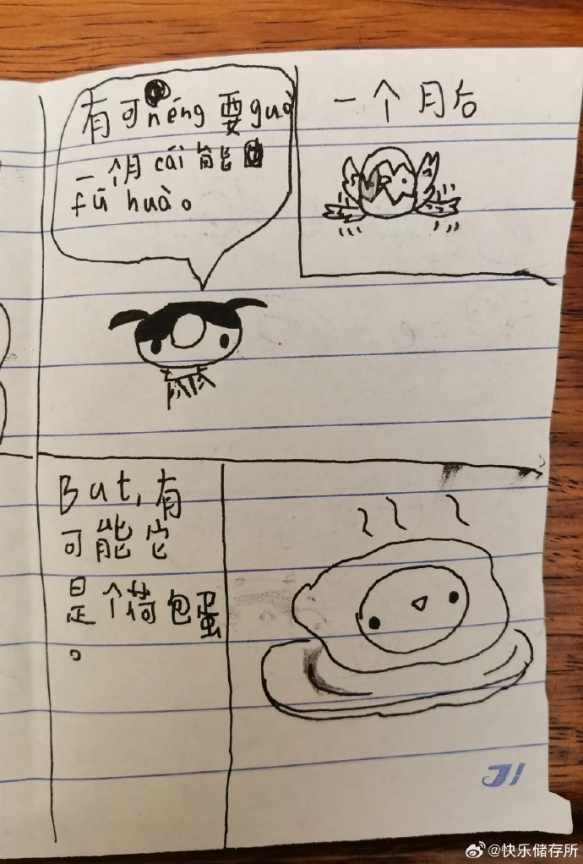 有可néng要guò
一个月cái能
fū huà。
一个月后
But,有
可能它
是个荷包蛋
。
J1
@快乐储存所